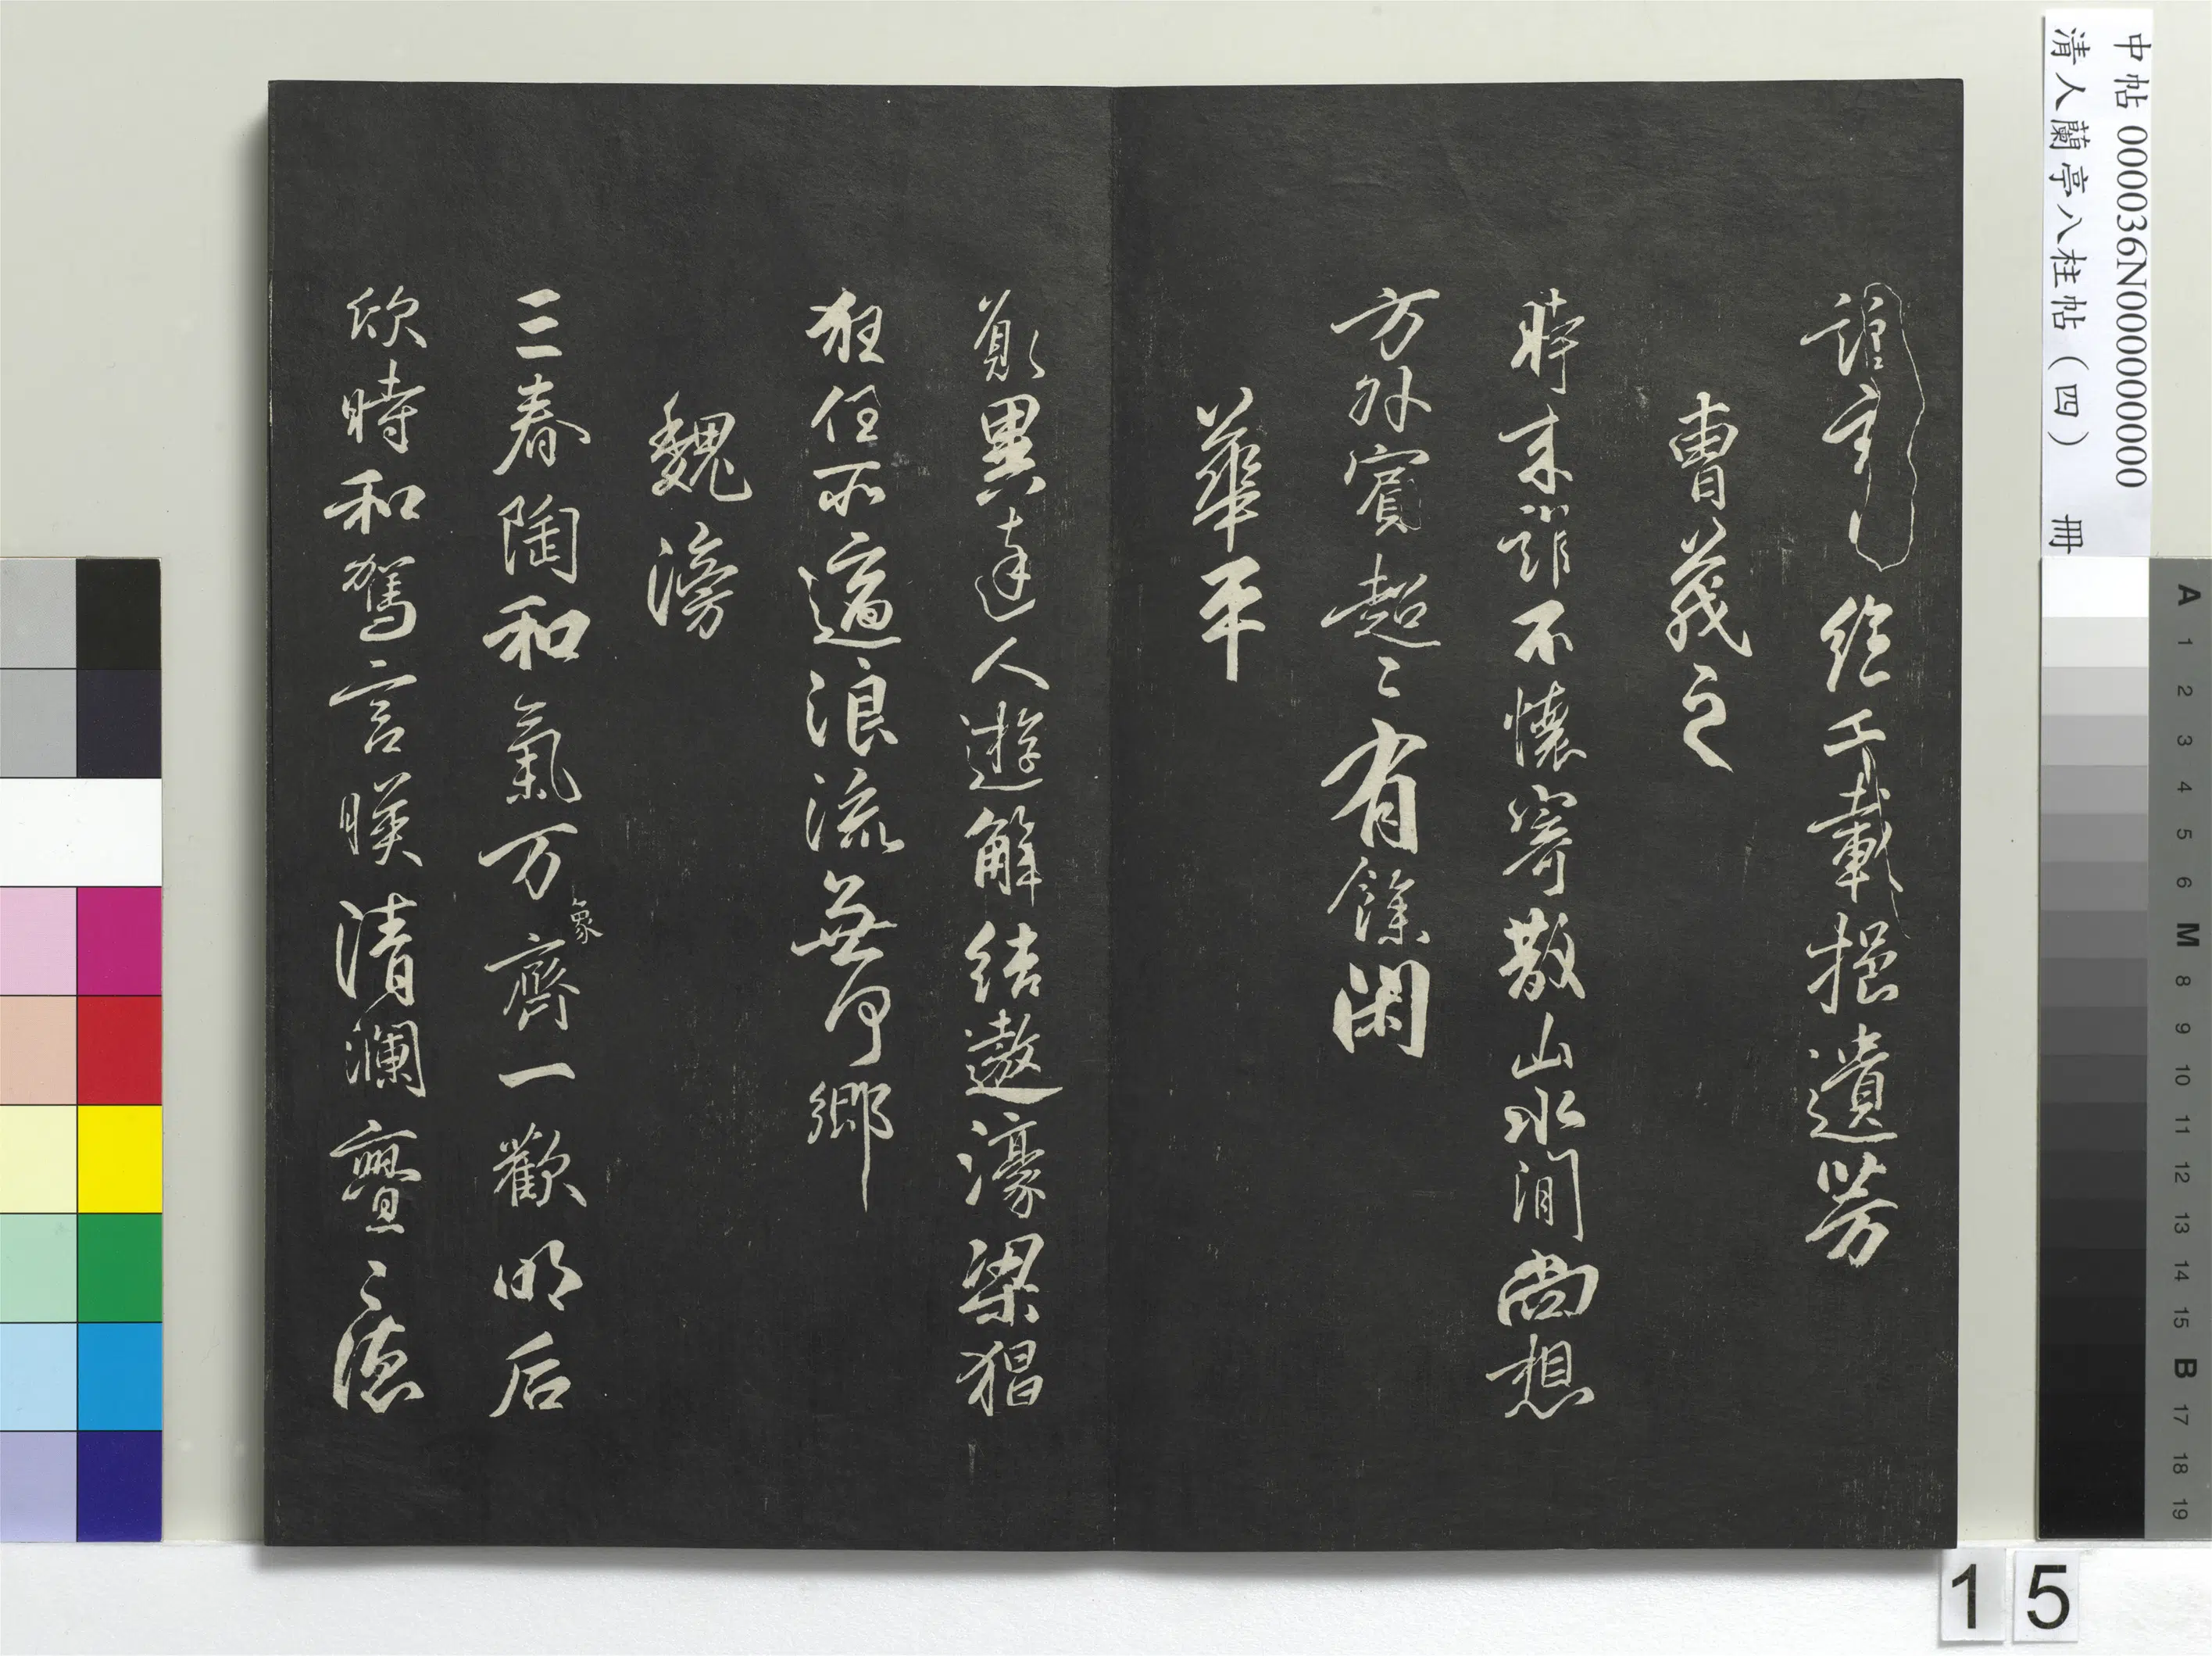 絶千載挹遺芳
曹茂之
時来誰不懷寄散山水間尚想
方外賓超〻有餘閑
華平
願異達人遊解結遨濠梁猖
狂任所適浪流無何鄉
魏滂
三春陶和氣万象齊一歡明后
欣時和駕言暎清瀾亹〻德
中帖 000036N000000000
清人蘭亭八柱帖（四） 冊
A 1 2 3 4 5 6 M 8 9 10 11 12 13 14 15 B 17 18 19
15